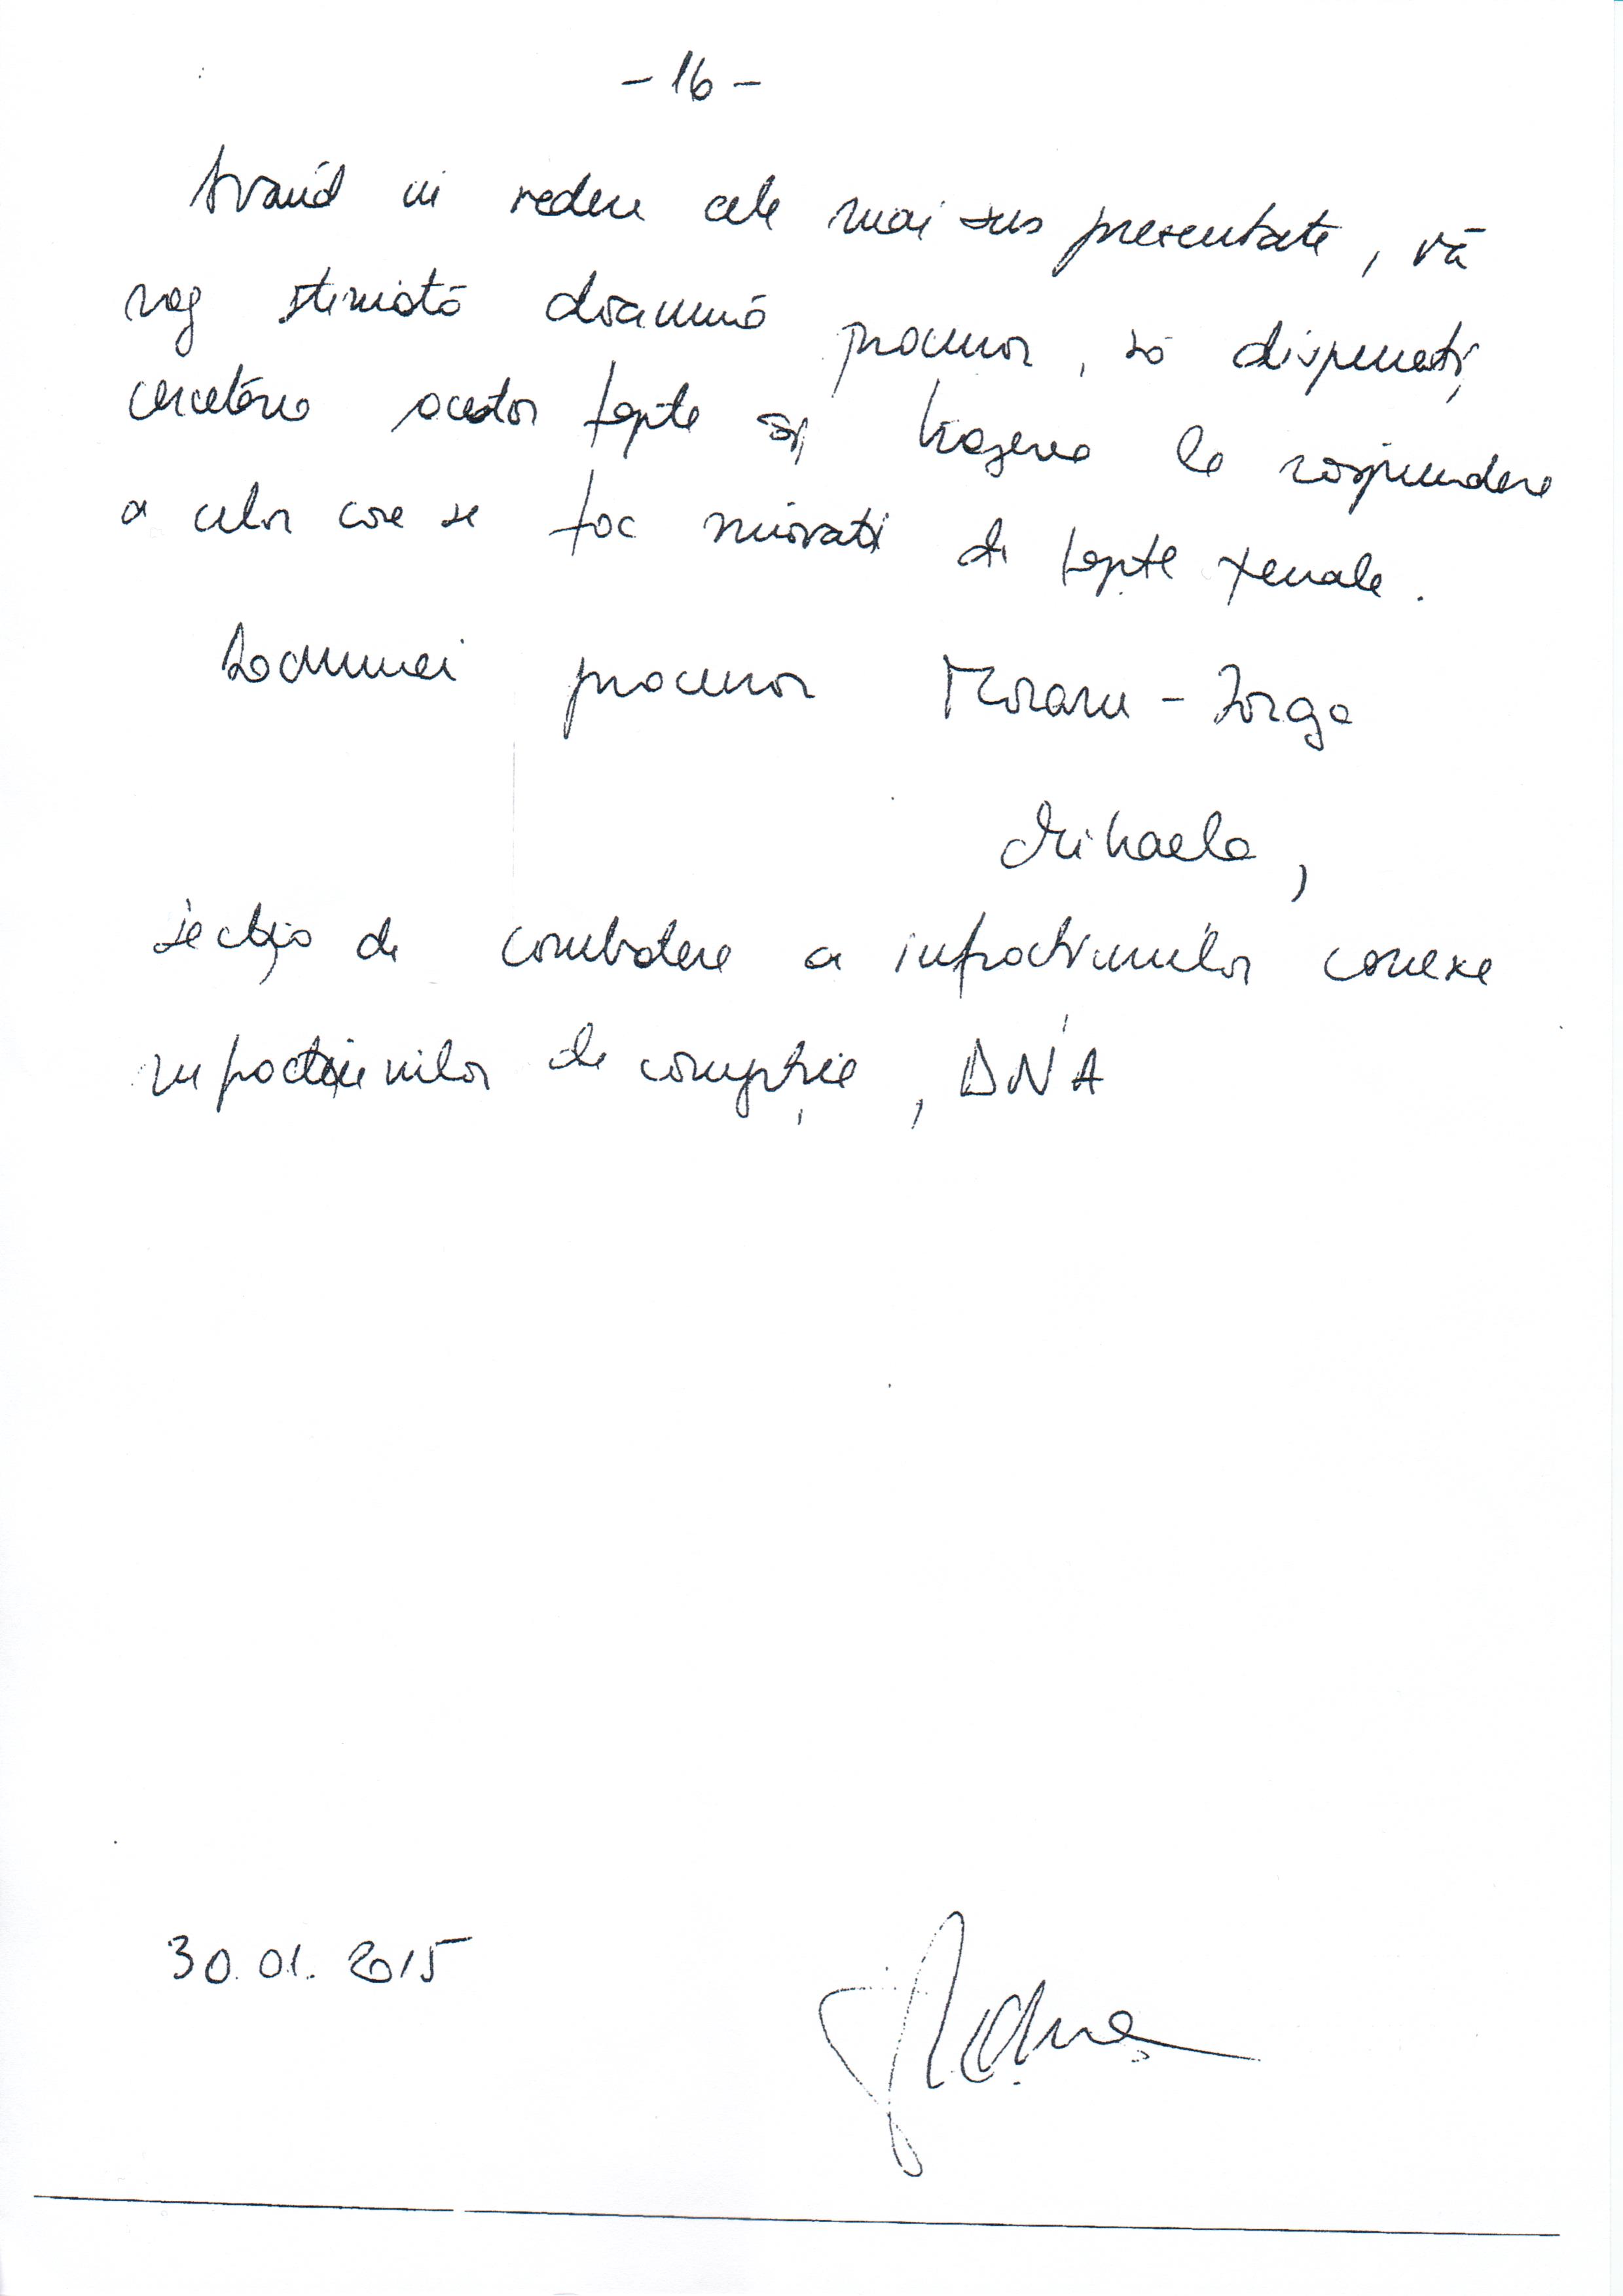 - 16 -
Avand in vedere cele mai sus prezentate, vă
rog stimată doamnă procuror, să dispuneți
cercetarea acestor fapte și tragerea la răspundere
a celor care se fac vinovați de fapte penale.
Doamnei procuror Moraru - Iorga
Mihaela,
Secția de combatere a infracțiunilor conexe
infracțiunilor de corupție, DNA
30.01.2015